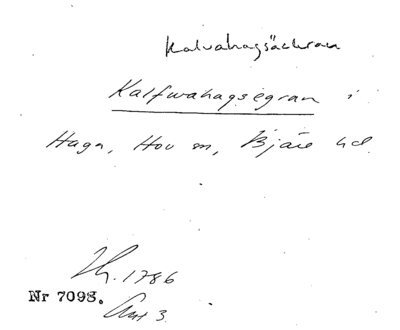 Kalvahagsäckran
Kalfwahagsegran i
Haga, Hov sn, Bjäre hd
Lh. 1786
Nr 7098.
Akt 3